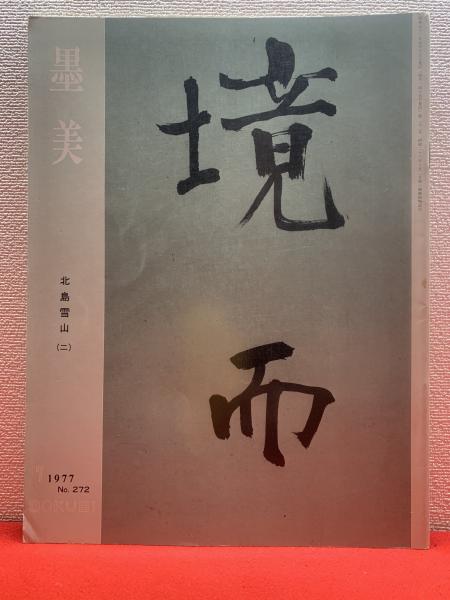 墨美
境而
北島雪山
(二)
7 1977
No. 272
BOKUBI